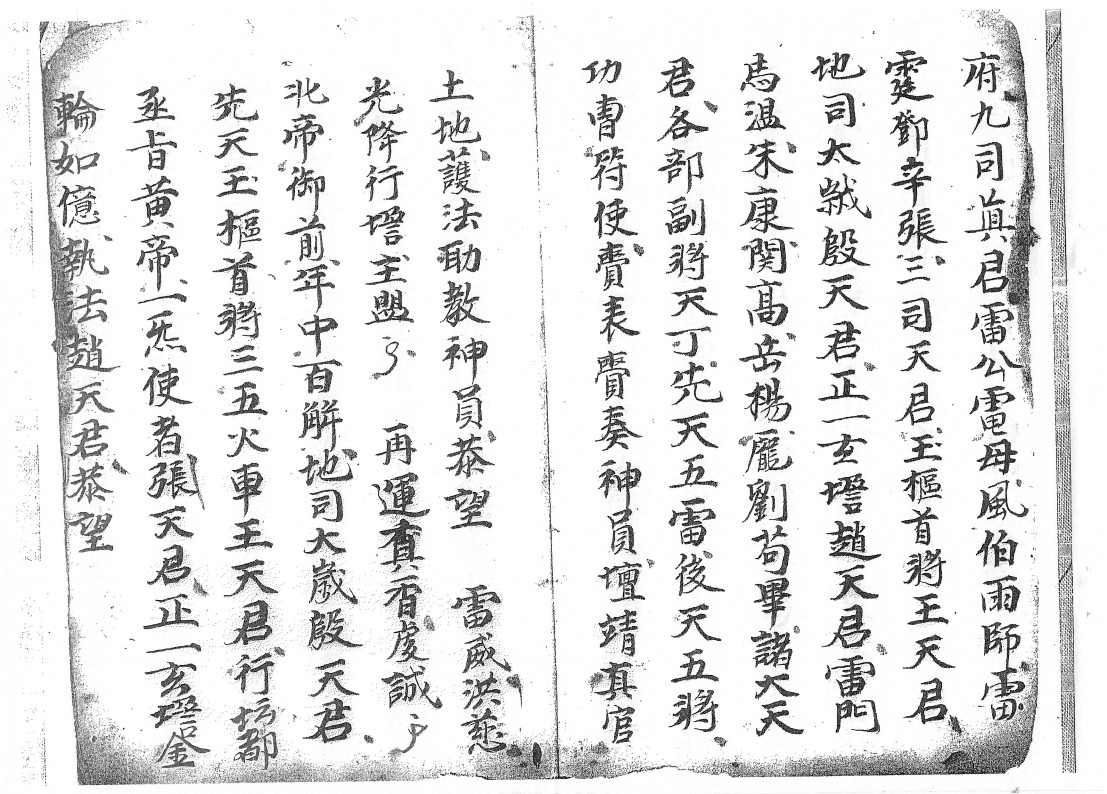 府九司真君雷公電母風伯雨師雷
霆鄧辛張三司天君玉樞首將王天君
地司太歲殷天君正一玄壇趙天君雷門
馬温朱康関髙岳楊龐劉苟畢諸大天
君各部副將天丁先天五雷後天五將
功曹符使賫表賫奏神員壇靖真官
土地護法助教神員恭望　雷威洪慈
光降行壇主盟　再運真香虔誠
北帝御前年中百解地司大歲殷天君
先天玉樞首將三五火車王天君行坛都
承旨黄帝一炁使者張天君正一玄壇金
輪如億執法趙天君恭望